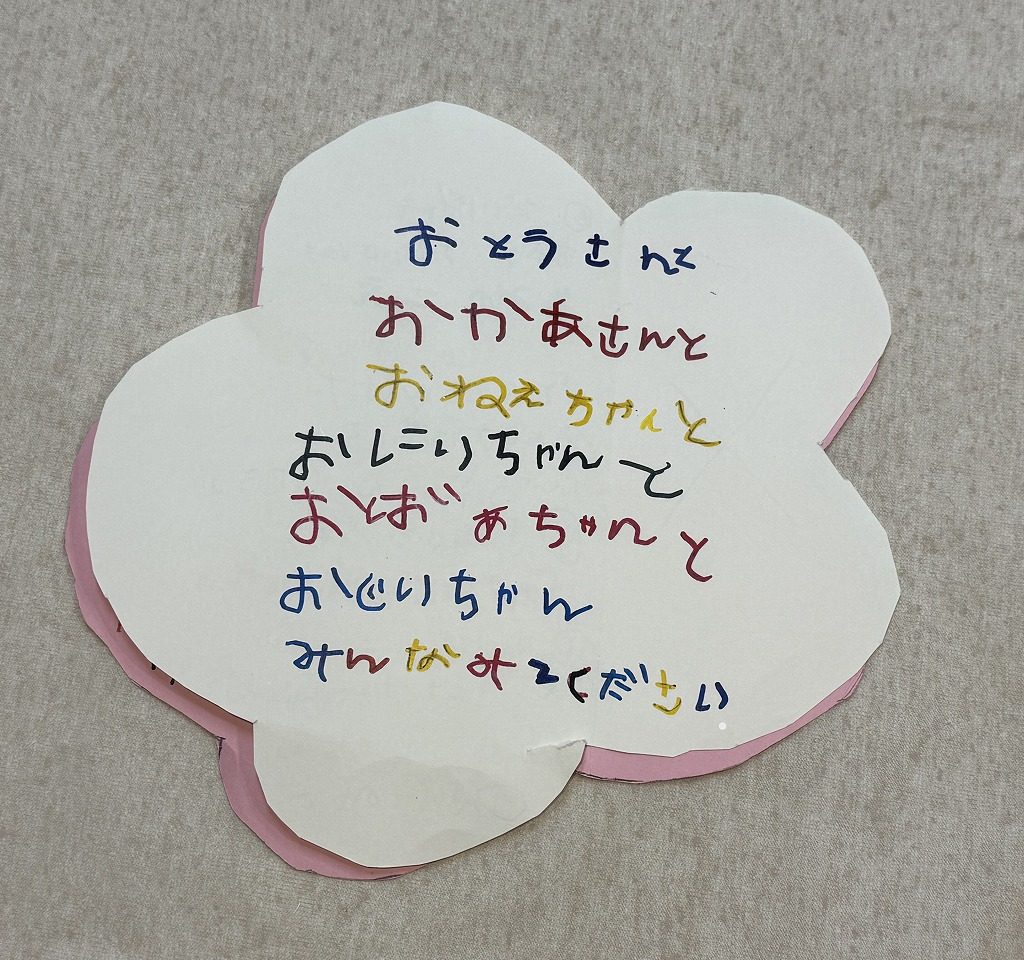 おとうさんと
おかあさんと
おねえちゃんと
おにいちゃんと
おとおばあちゃんと
おじいちゃん
みんなみてください